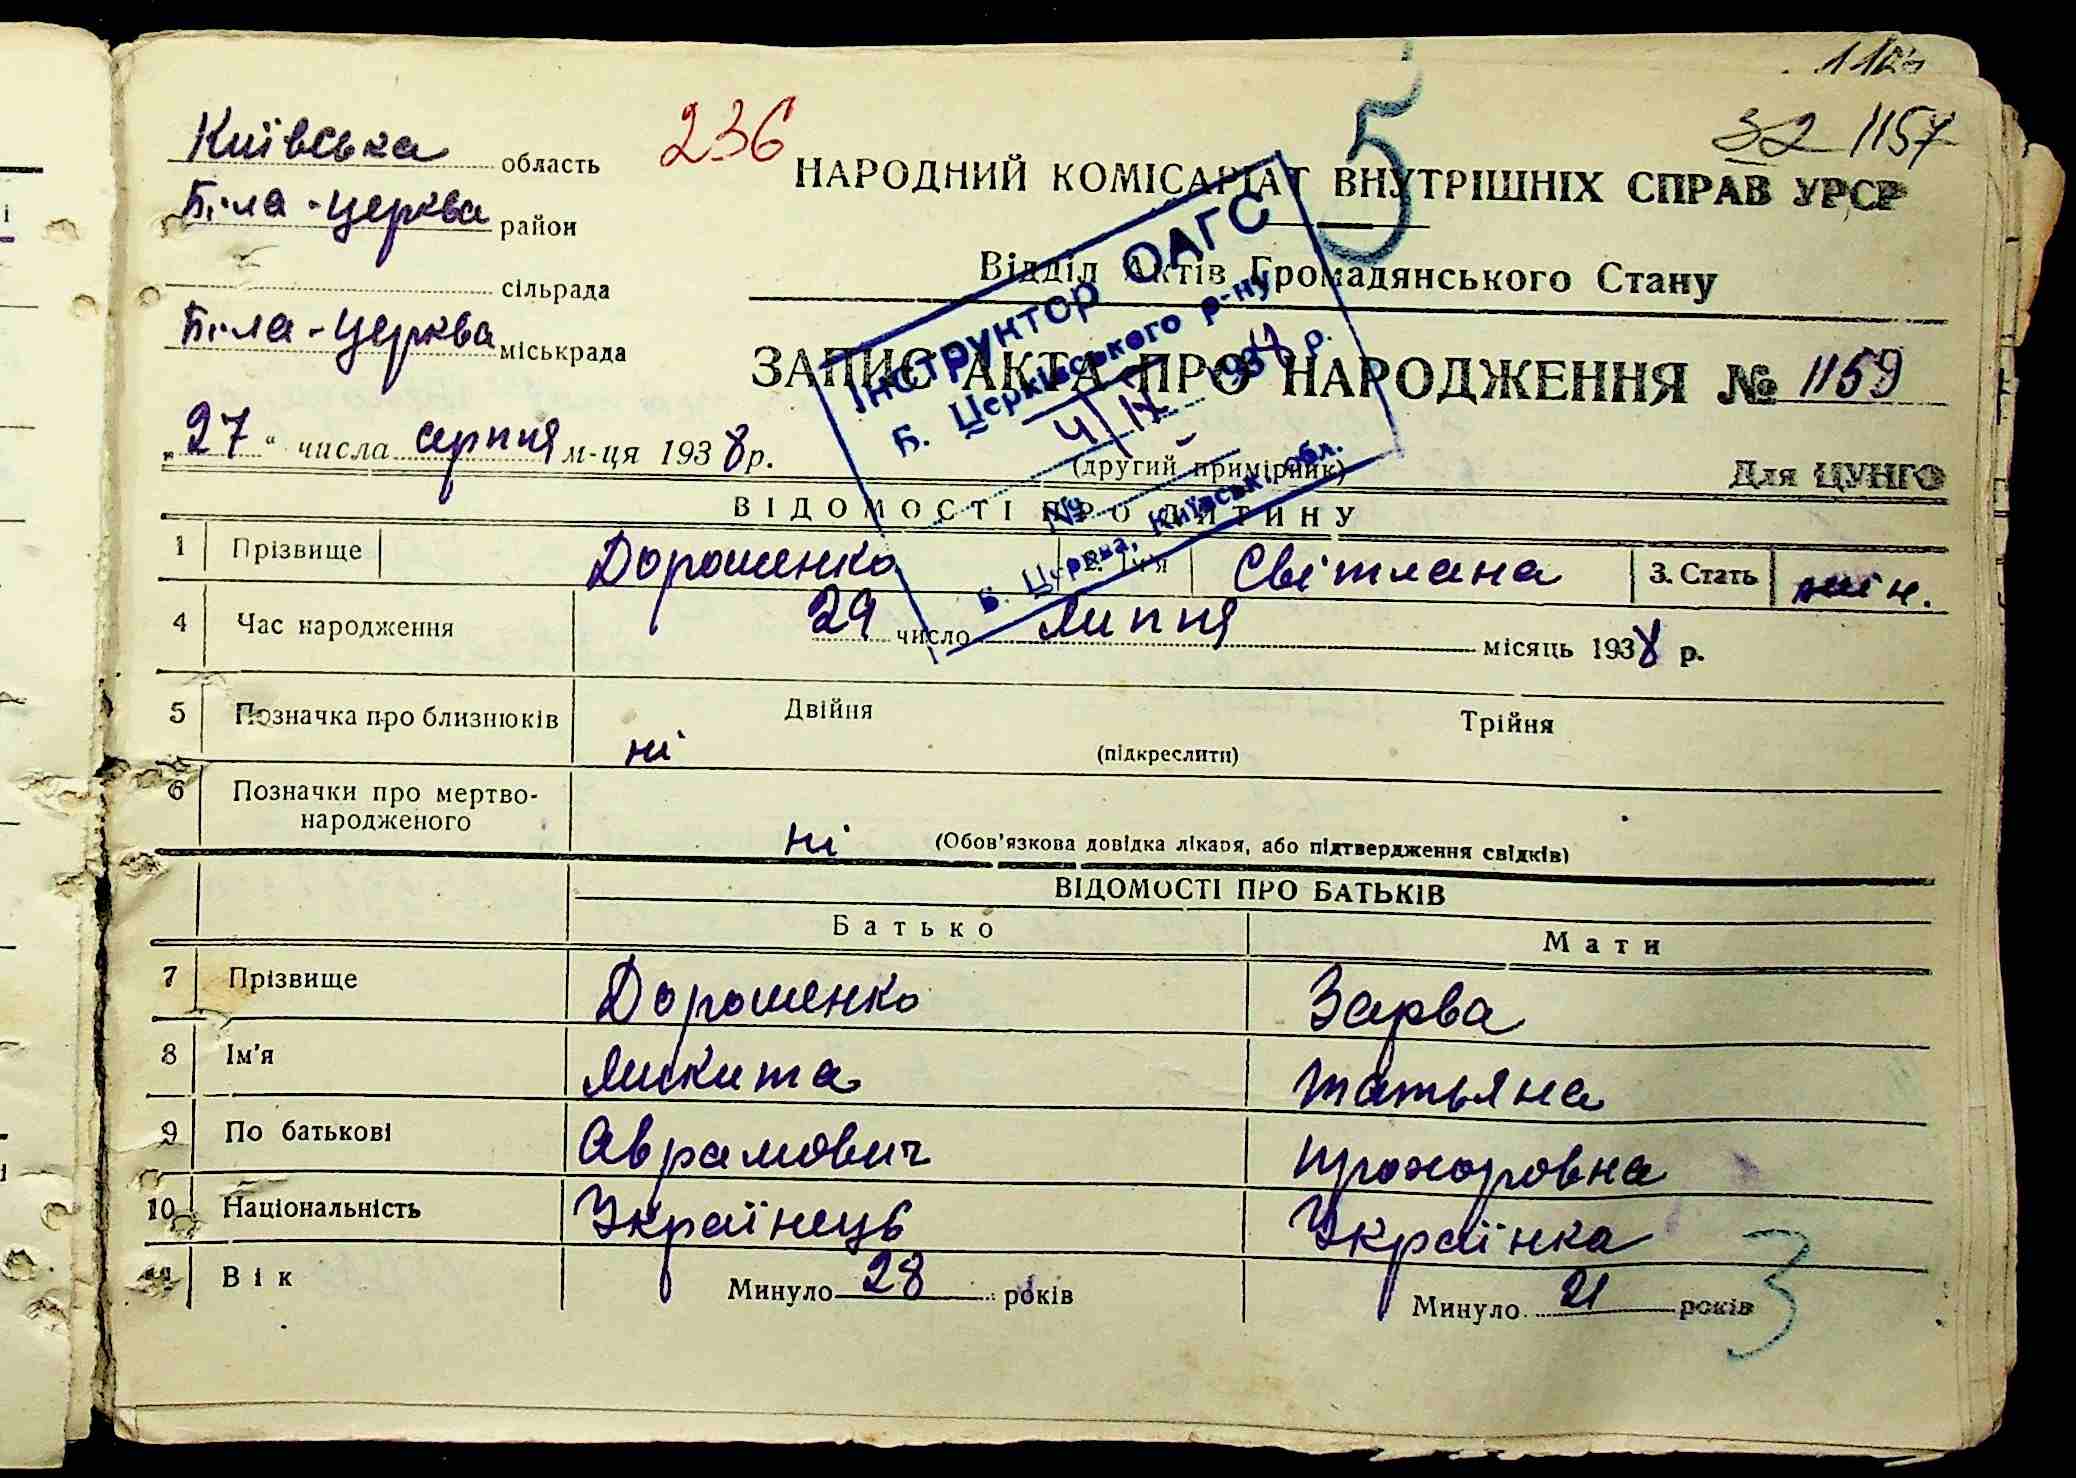 Київська область
236
5
32 1157
Біла-церква район
НАРОДНИЙ КОМІСАРІАТ ВНУТРІШНІХ СПРАВ УРСР
сільрада
Відділ Актів Громадянського Стану
Біла-церква міськрада
ЗАПИС АКТА ПРО НАРОДЖЕННЯ № 1159
„27“ числа серпня м-ця 1938 р.
(другий примірник)
Для ЦУНГО
Інструктор ОАГС
Б. Церківського р-ну
193 р.
№
Б. Церква, Київськ. обл.
ВІДОМОСТІ ПРО ДИТИНУ
1 Прізвище Дорошенко Світлана 3. Стать жін.
4 Час народження 29 число липня місяць 1938 р.
5 Позначка про близнюків ні Двійня Трійня
(підкреслити)
6 Позначки про мертвонародженого ні (Обов'язкова довідка лікаря, або підтвердження свідків)
ВІДОМОСТІ ПРО БАТЬКІВ
Батько Мати
7 Прізвище Дорошенко Зарва
8 Ім'я Микита Татьяна
9 По батькові Аврамович Прохоровна
10 Національність Українець Українка
11 Вік Минуло 28 років Минуло 21 років
3